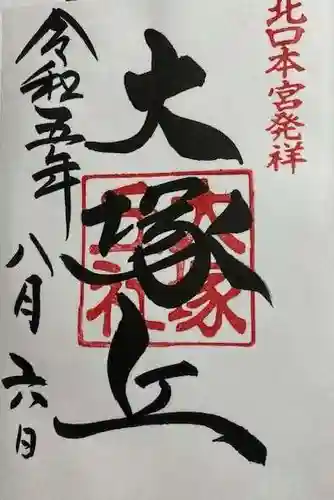 北口本宮発祥
大塚丘
大塚丘社
令和五年
八月六日